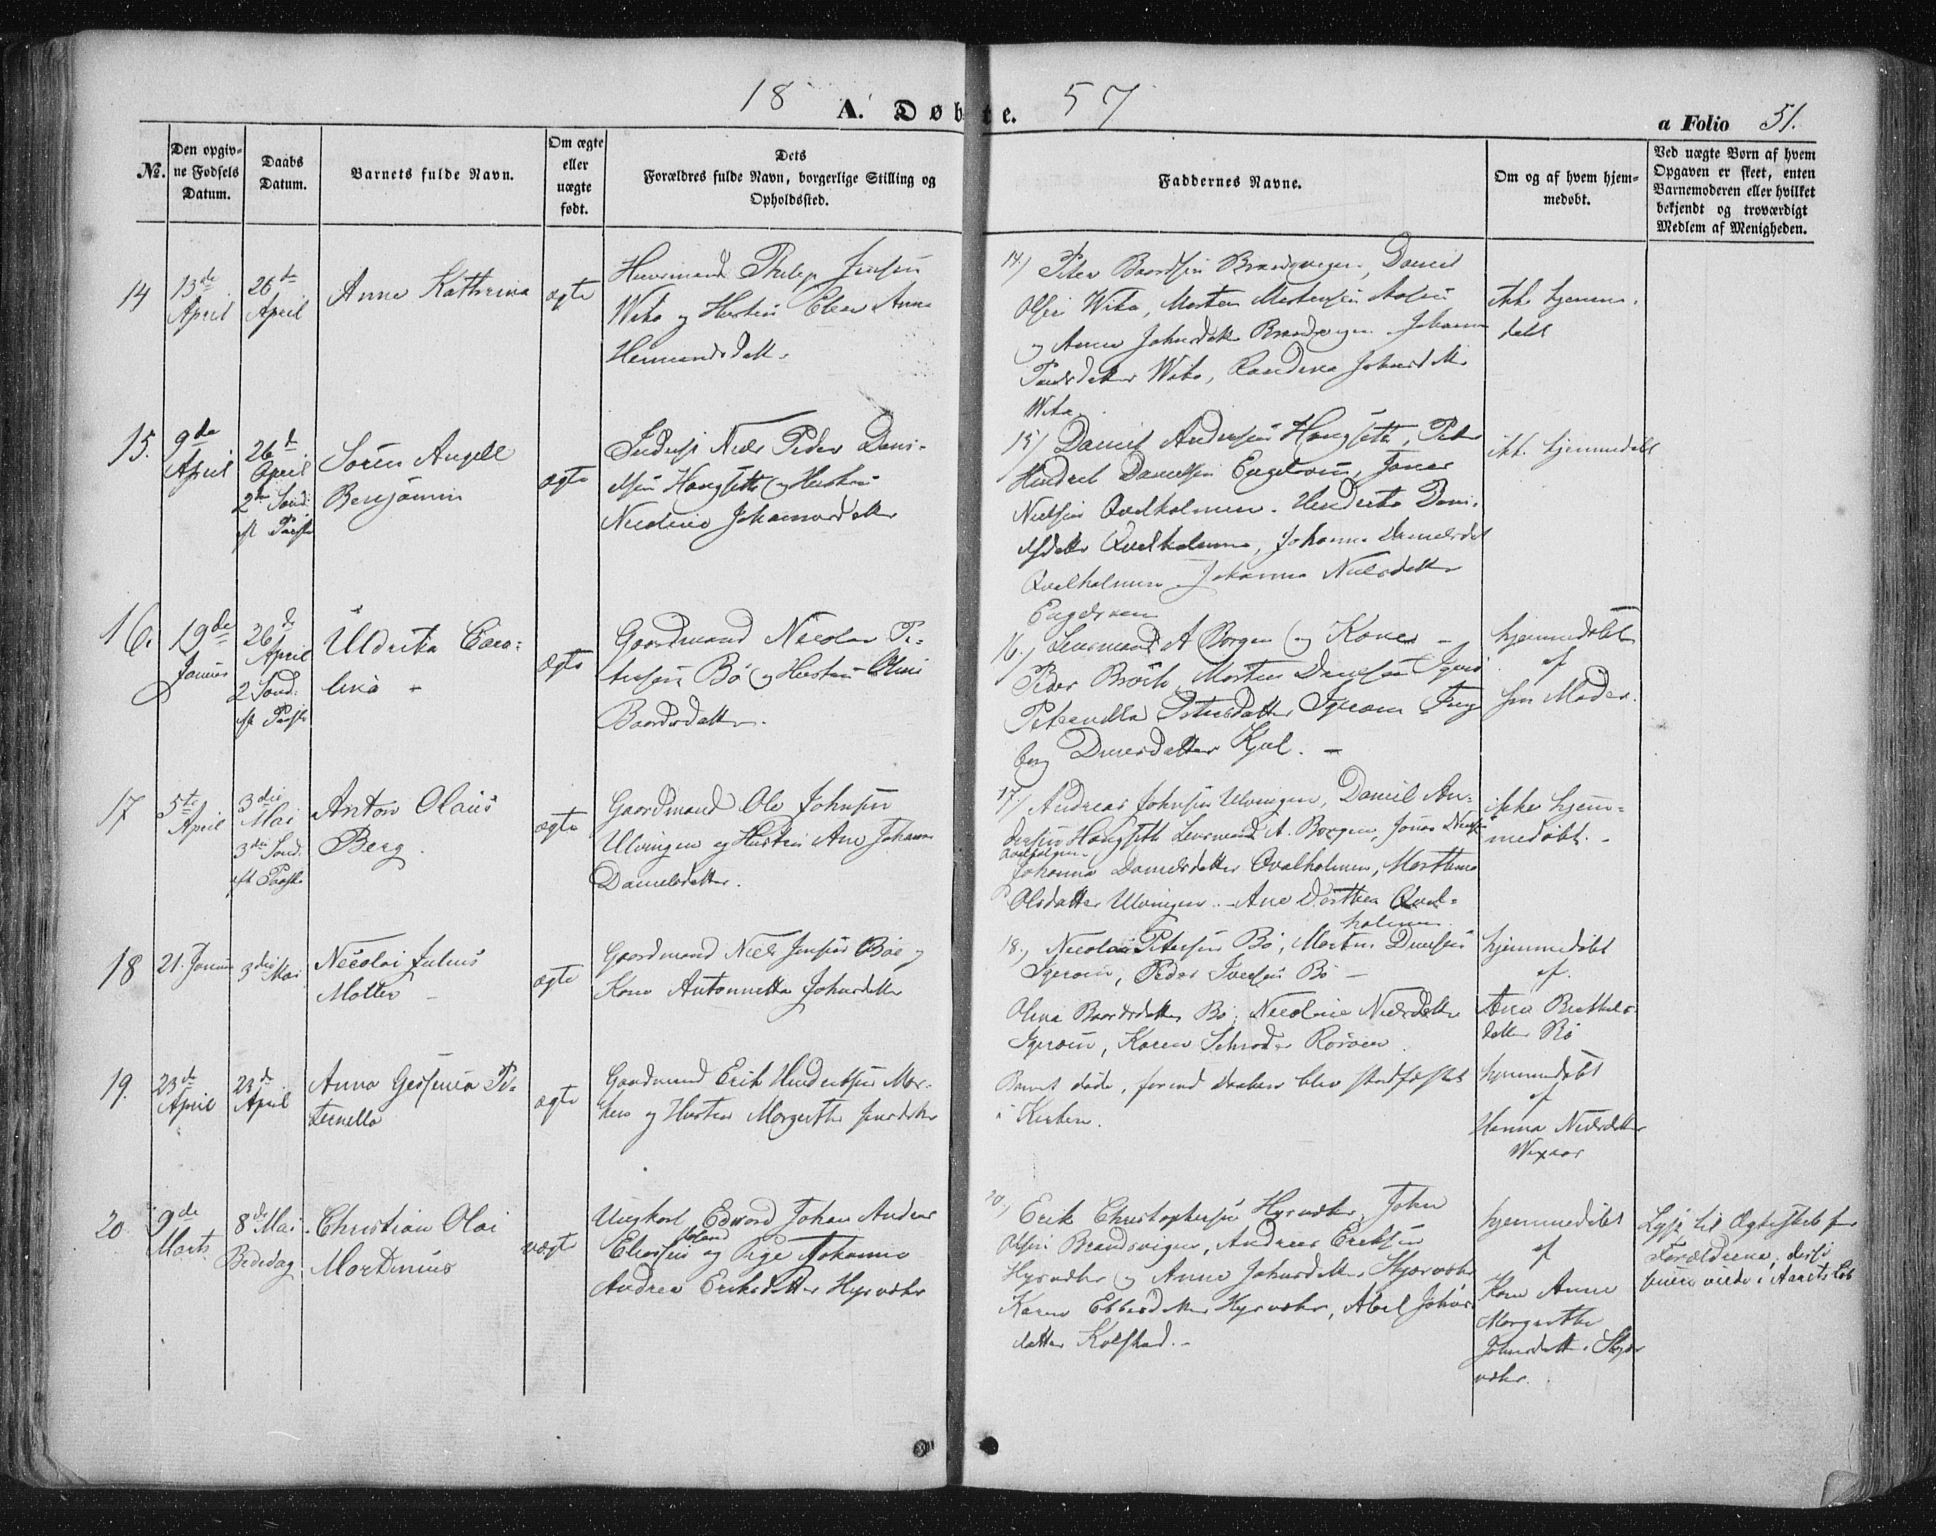 18 57
A. Døbte.
a Folio 51.
No.
Den opgiv-
ne Fødsels
Datum.
Daabs
Datum.
Barnets fulde Navn.
Om ægte
eller
uægte
født.
Dets
Forældres fulde Navn, borgerlige Stilling og
Opholdssted.
Faddernes Navne.
Om og af hvem hjem-
medøbt.
Ved uægte Børn af hvem
Opgaven er skeet, enten
Barnemoderen eller hvilket
bekjendt og troværdigt
Medlem af Menigheden.
14
13de
April
26de
April
Anne Kathrina
ægte
Huusmand Philip Jensen
Wika og Hustru Elen Anna
Hermandsdatt.
14) Peter Baardsen Brandsvigen, Daniel
Olsen Wika, Morten Mortensen
og Anne Johnsdatter Brandsvigen, Johanna
datter Wika, Johnsdatter
Wika
ikke hjemme-
døbt
15.
9de
April
26d
April
2den Sønd.
eft Paaske
Sören Angell
Benjamin
ægte
Inderst Niels Peder Dani-
elsen Hongseth og Hustru
Nicoline Johannesdatter
15) Daniel Andersen Hongseth, Peter
Hindrik Danielsen Engesven, Jonas
Nielsen Qvalholmen. Hendrika Dani-
elsdatter Qvalholmen, Johanna Danielsdat
Qvalholmen Johanna Nielsdatter
Engesven
ikk. hjemmedøbt
16.
19de
Januar
26de
April
2 Sønd.
eft Paaske
Uldrika Caro-
lina -
ægte
Gaardmand Nicolai Pe-
tersen Bö og Hustru Olava
Baardsdatter.
16.) Lensmand A Borgen og Kone -
Peder Bröck, Morten Danielsen Igerö
Petersdatter Igeröen Ing
borg Danielsdatter Kjul. -
hjemmedøbt
af
sin Moder.
17
5te
April
3die
Mai
3die Sønd.
eft Paaske
Anton Olaus
Berg.
ægte
Gaardmand Ole Johnsen
Ulvingen og Hustru Ane Johanna
Danielsdatter.
17) Andreas Johnsen Ulvingen, Daniel An-
dersen Hongseth Lensmand A. Borgen, Jonas Niels
Johanna Danielsdatter Qvalholmen, Marthina
Olsdatter Ulvingen. - Ane Dorthea Qval-
holmen
ikke hjem-
medøbt. -
18
21. Januar
3die Mai
Nicolai Julius
Motter -
ægte
Gaardmand Niels Jensen Böe og
Kone Antonnetta Johnsdatter
18.) Nicolai Petersen Bö, Morten Danielsen
Igeröen, Peder Iversen Bö -
Olina Baardsdatter Bö, Nicoline Nielsdatter
Igeröen, Karen Schroder Rorøen.
hjemmedøbt
af.
Ana Berthels-
datter Bö
19.
23de
April
23de
April
Anna Gersinia Pe-
ternella
ægte
Gaardmand Erik Hindriksen Mor-
og Hustru Margrethe Jensdatter
Barnet døde, forend Daaben blev stadfæstet
i Kirken.
hjemmedøbt
af
Hanna Nielsdatter
20
9de
Marts
8de Mai
Bededag
Christian Olai
Mortinius
uægte
Ungkarl Edvard Johan Andreas
Eliassen og Pige Johanna
Andrea Eriksdatter Hyrveher
20.) Erik Christophersen Hyrveher, John
Olsen Brandsvigen, Andreas Eriksen
Hyrveher og Anne Johnsdatter Skjærveher
Karen Ebbesdatter Hyrveher, Abel Johns
datter Kolstad. -
hjemmedøbt
af
Kone Anne
Margrethe
Johnsdatter Skjær
veher.
Lyst til Ægteskab for
Forældrene,
viede i Aarets Løb